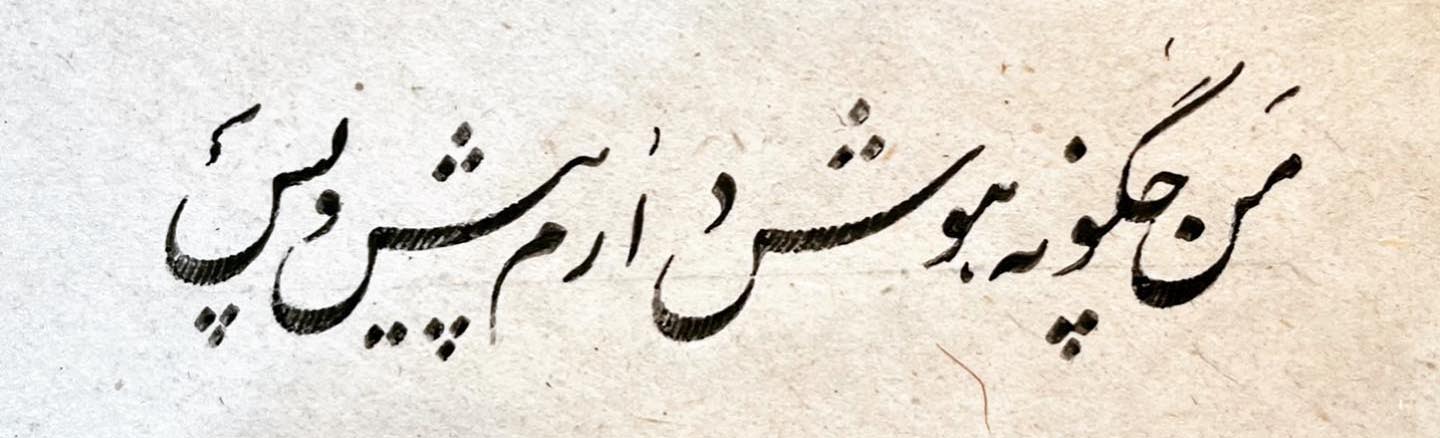 من چگونه هوش دارم پیش و پس